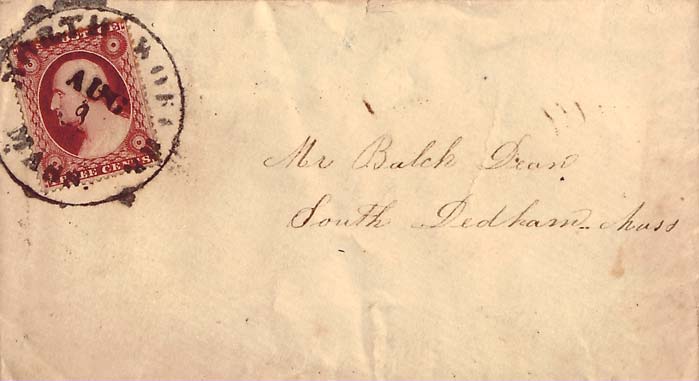 AUG
9
MASS.
THREE CENTS.
Mr Balch Dean
South Dedham - Mass